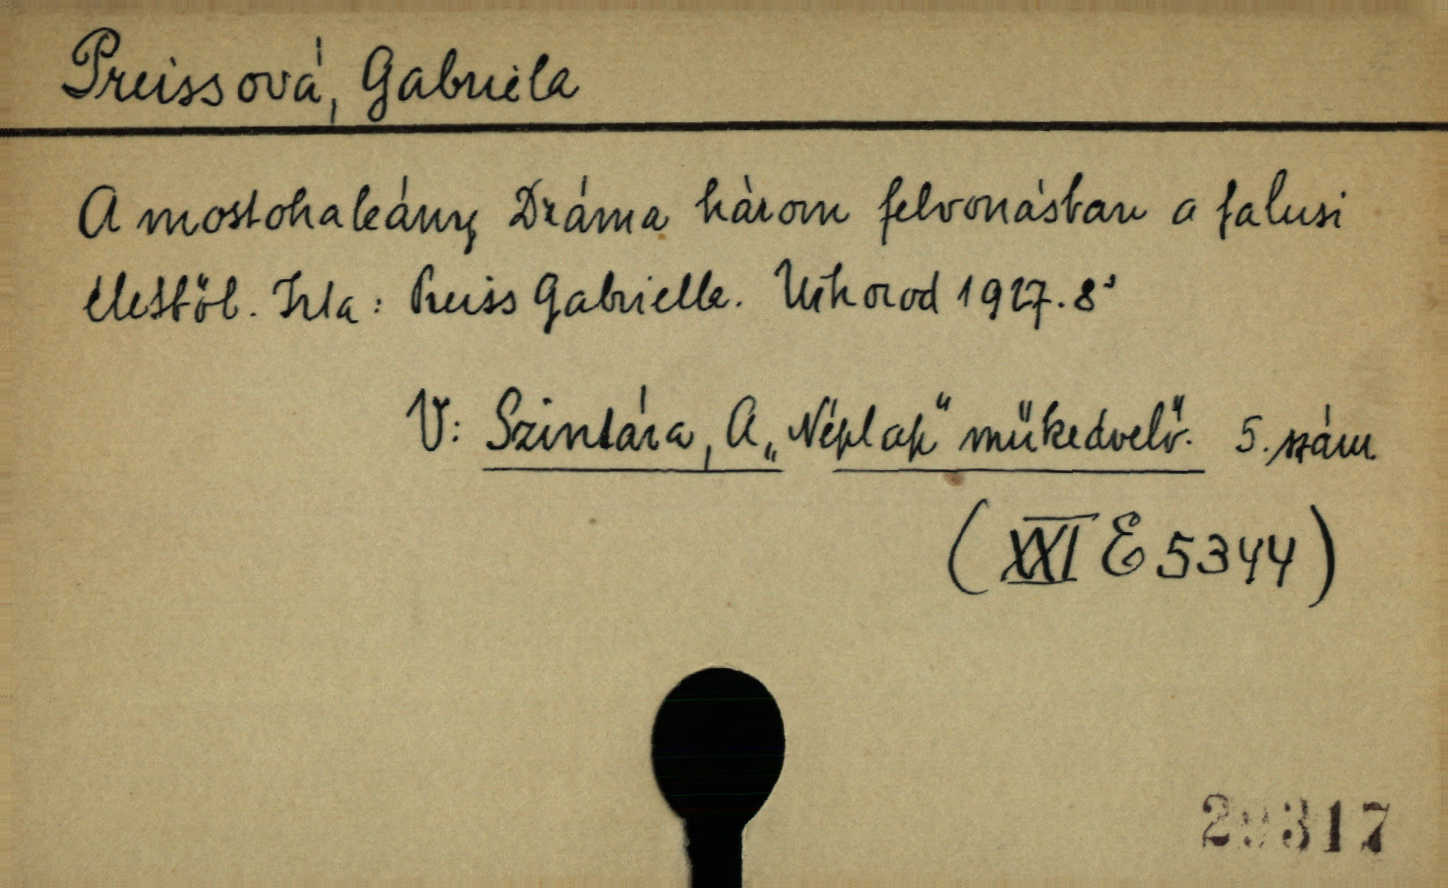 Preissová, Gabriela
A mostohaleány, Dráma három felvonásban a falusi
életből. Irta: Preiss Gabrielle. Užhorod 1927. 8°
V: Szintára, A „Néplap" műkedvelő. 5. szám
(XXI E 5344)
29317